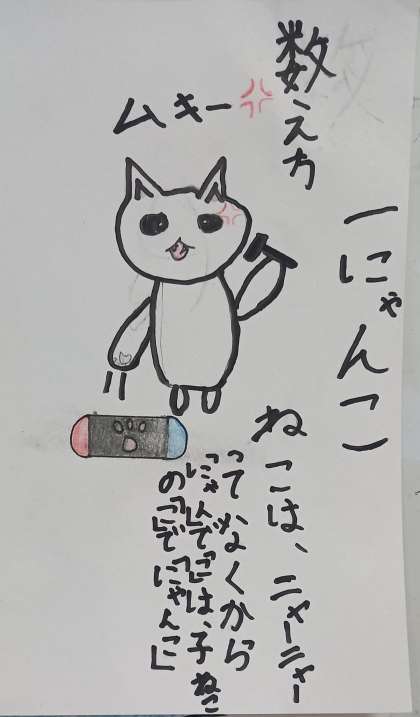 数え方
一にゃんこ
ムキー
ねこは、ニャーニャー
ってなくから
「にゃん」で「こ」は、子ねこ
の「こ」で「にゃんこ」